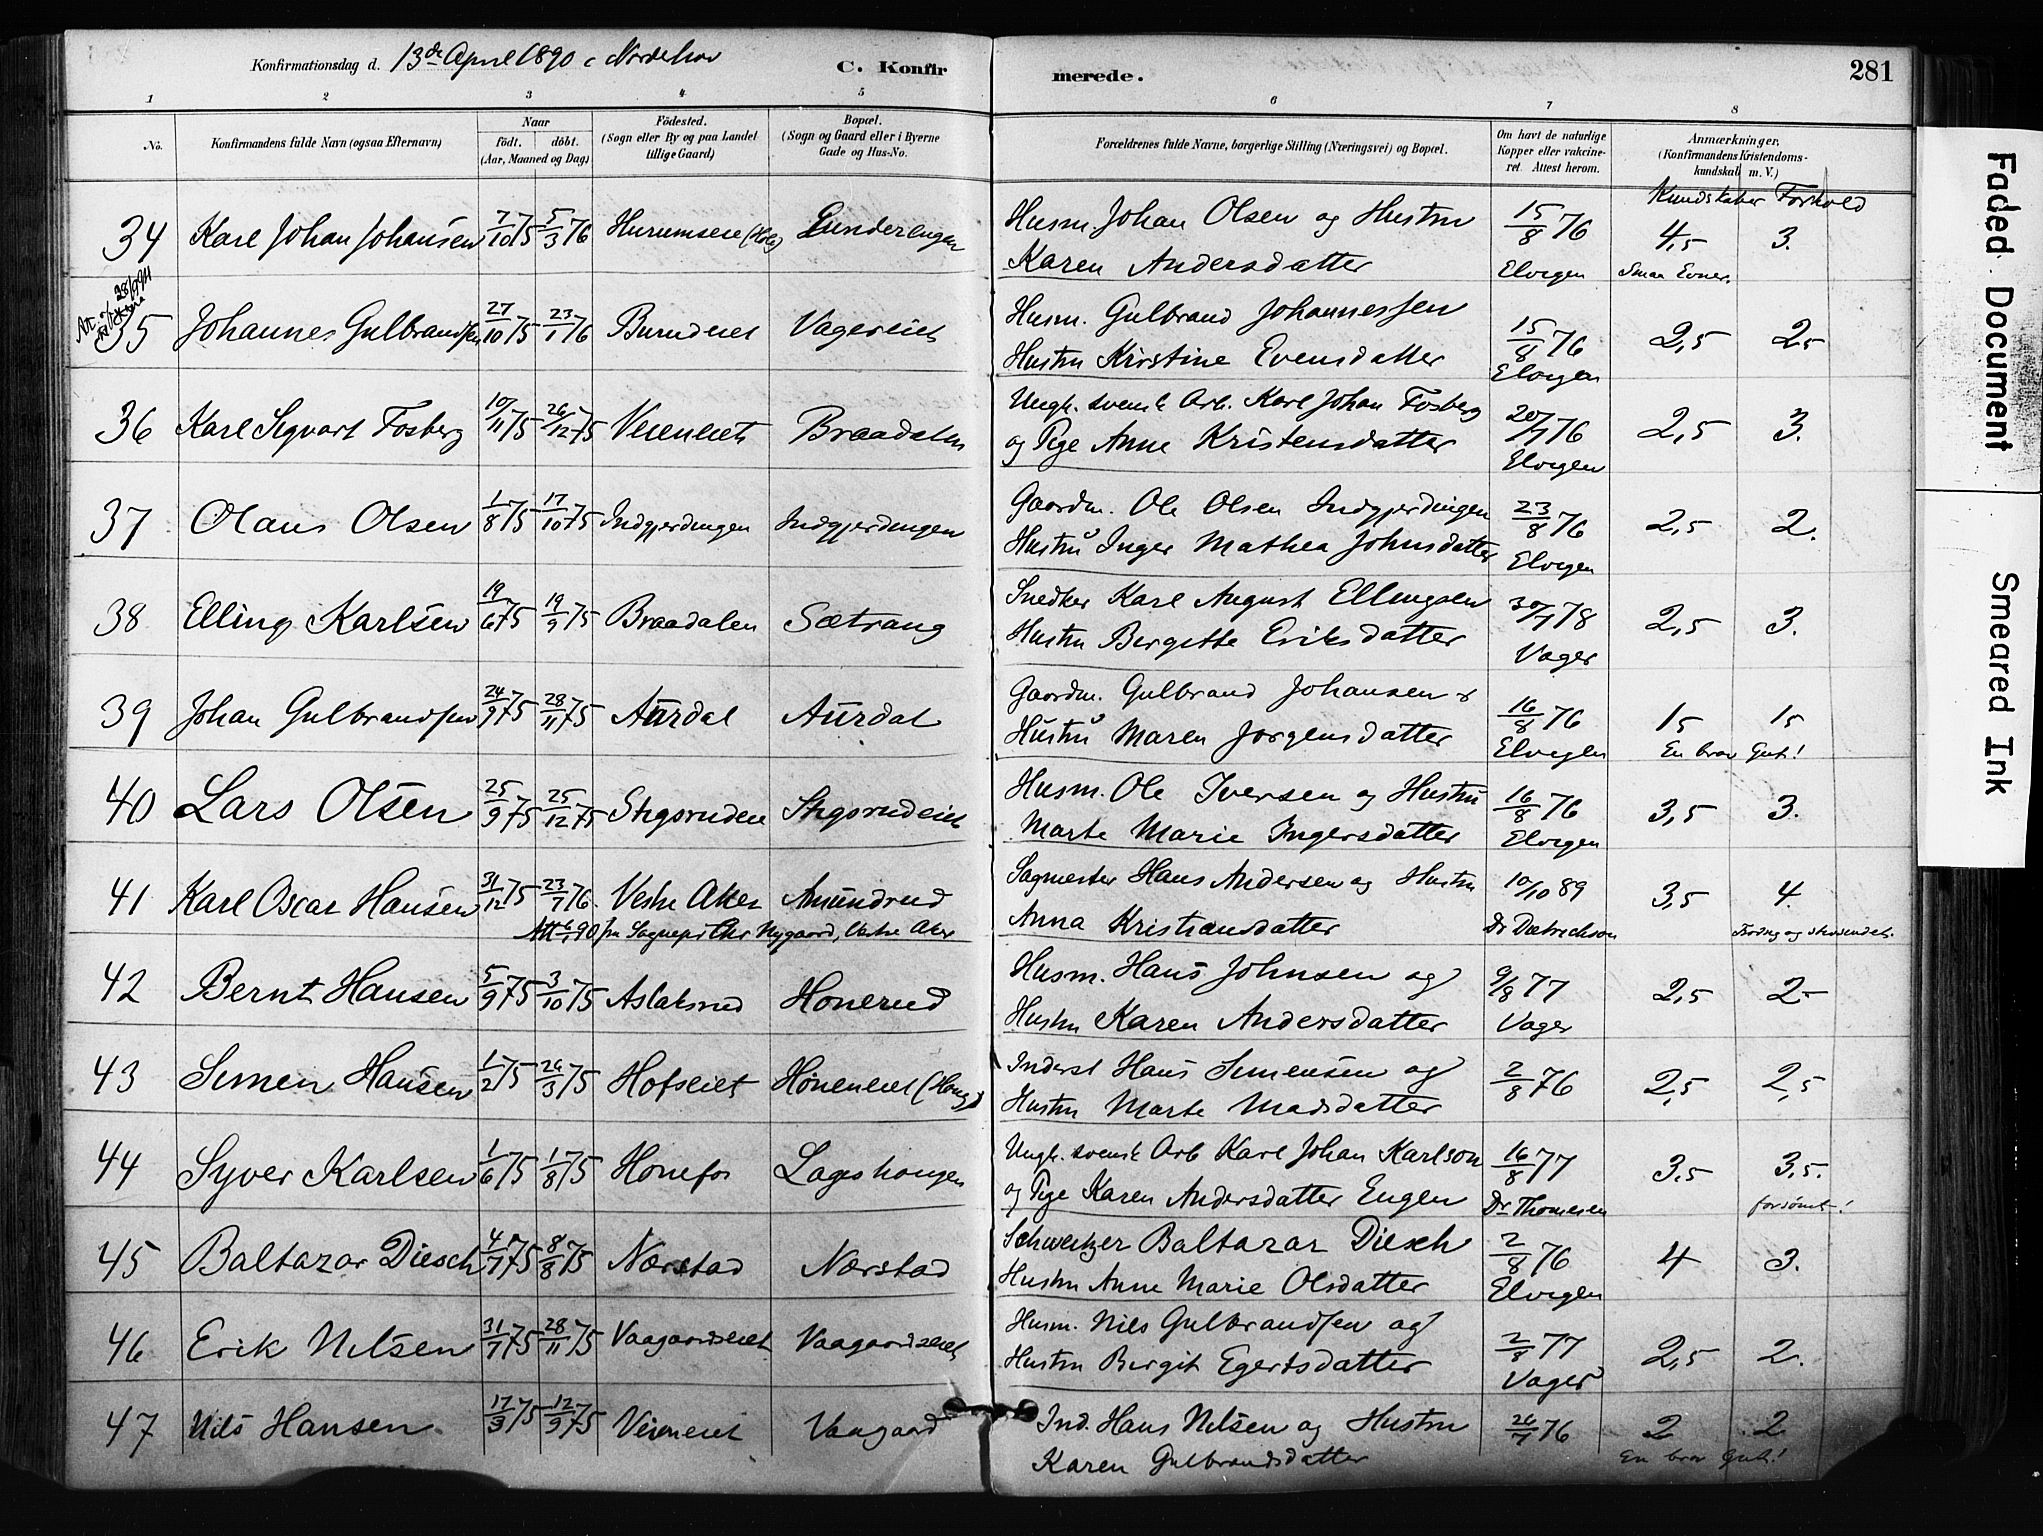 Konfirmationsdag d. 13de April 1890 i Norderhov
C. Konfirmerede.
281
1 2 3 4 5 6 7 8
No. Konfirmandens fulde Navn (ogsaa Efternavn) Naar født. døbt. (Aar, Maaned og Dag) Fødested. (Sogn eller By og paa Landet tillige Gaard) Bopæl. (Sogn og Gaard eller i Byerne Gade og Hus-No. Forældrenes fulde Navne, borgerlige Stilling (Næringsvei) og Bopæl. Om havt de naturlige Kopper eller vakcineret. Attest herom. Anmærkninger. (Konfirmandens Kristendomskundskab m. V.)
Kundskaber Forhold
34 Karl Johan Johansen 7/10 75 5/3 76 Gunderengen Husm. Johan Olsen og Hustru 15/8 76 4,5 3.
Karen Andersdatter Elvigen Smaa Evner.
28/9 94
35 Johannes Gulbrandsen 27/10 75 23/1 76 Burudeiet Vagereiet Husm. Gulbrand Johannessen 15/8 76 2,5 2-
Hustru Kristine Evensdatter Elvigen
36 Karl Sigvart Fosberg 10/11 75 26/12 75 Veieneiet Braadalen Ungk. svensk Arb. Karl Johan Fosberg 20/7 76 2,5 3.
og Pige Anne Kristensdatter Elvigen
37 Olaus Olsen 1/8 75 17/10 75 Indgjerdingen Indgjerdingen Gaardm. Ole Olsen Indgjerdingen 23/8 76 2,5 2.
Hustru Inger Mathea Johnsdatter Elvigen
38 Elling Karlsen 19/6 75 19/9 75 Braadalen Sætrang Snedker Karl August Ellingsen 30/7 78 2,5 3.
Hustru Bergitte Eriksdatter Vager
39 Johan Gulbrandsen 24/9 75 28/11 75 Aurdal Aurdal Gaardm. Gulbrand Johansen & 16/8 76 1,5 1,5
Hustru Maren Jorgensdatter Elvigen En brav Gut!
40 Lars Olsen 25/9 75 25/12 75 Stigsrudeie Stigsrudeiet Husm. Ole Iversen og Hustru 16/8 76 3,5 3.
Marte Marie Ingersdatter Elvigen
41 Karl Oscar Hansen 31/12 75 23/7 76. Vestre Aker Amundrud Sagmester Hans Andersen og Hustru 10/10 89 3,5 4.
90 fra Sognepr. Chr. Nygaard, Vestre Aker Anna Kristiansdatter Dr Dietrichson
42 Bernt Hansen 5/9 75 3/10 75 Aslaksrud Honerud Husm. Hans Johnsen og 9/8 77 2,5 2-
Hustru Karen Andersdatter Vager
43 Simen Hansen 1/2 75 26/3 75 Hofseiet Høneneiet Inderst Hans Simensen og 2/8 76 2,5 2,5
Hustru Marte Madsdatter
44 Syver Karlsen 1/6 75 1/8 75 Honefos Lageshaugen Ungk. svensk Arb Karl Johan Karlson 16/8 77 3,5 3,5.
og Pige Karen Andersdatter Engen Dr Thomesen forsømt!
45 Baltazar Diesch 4/7 75 8/8 75 Nærstad Nærstad Schweitzer Baltazar Diesch 2/8 76 4 3.
Hustru Anne Marie Olsdatter Elvigen
46 Erik Nilsen 31/7 75 28/11 75 Vaagaardseiet Vaagaardseiet Husm. Nils Gulbrandsen og 2/8 77 2,5 2.
Hustru Birgit Egertsdatter Vager
47 Nils Hansen 17/3 75 12/9 75 Veieneiet Vaagaard Ind. Hans Nilsen og Hustru 26/7 76 2 2
Karen Gulbrandsdatter En brav Gut!
Faded Document
Smeared Ink